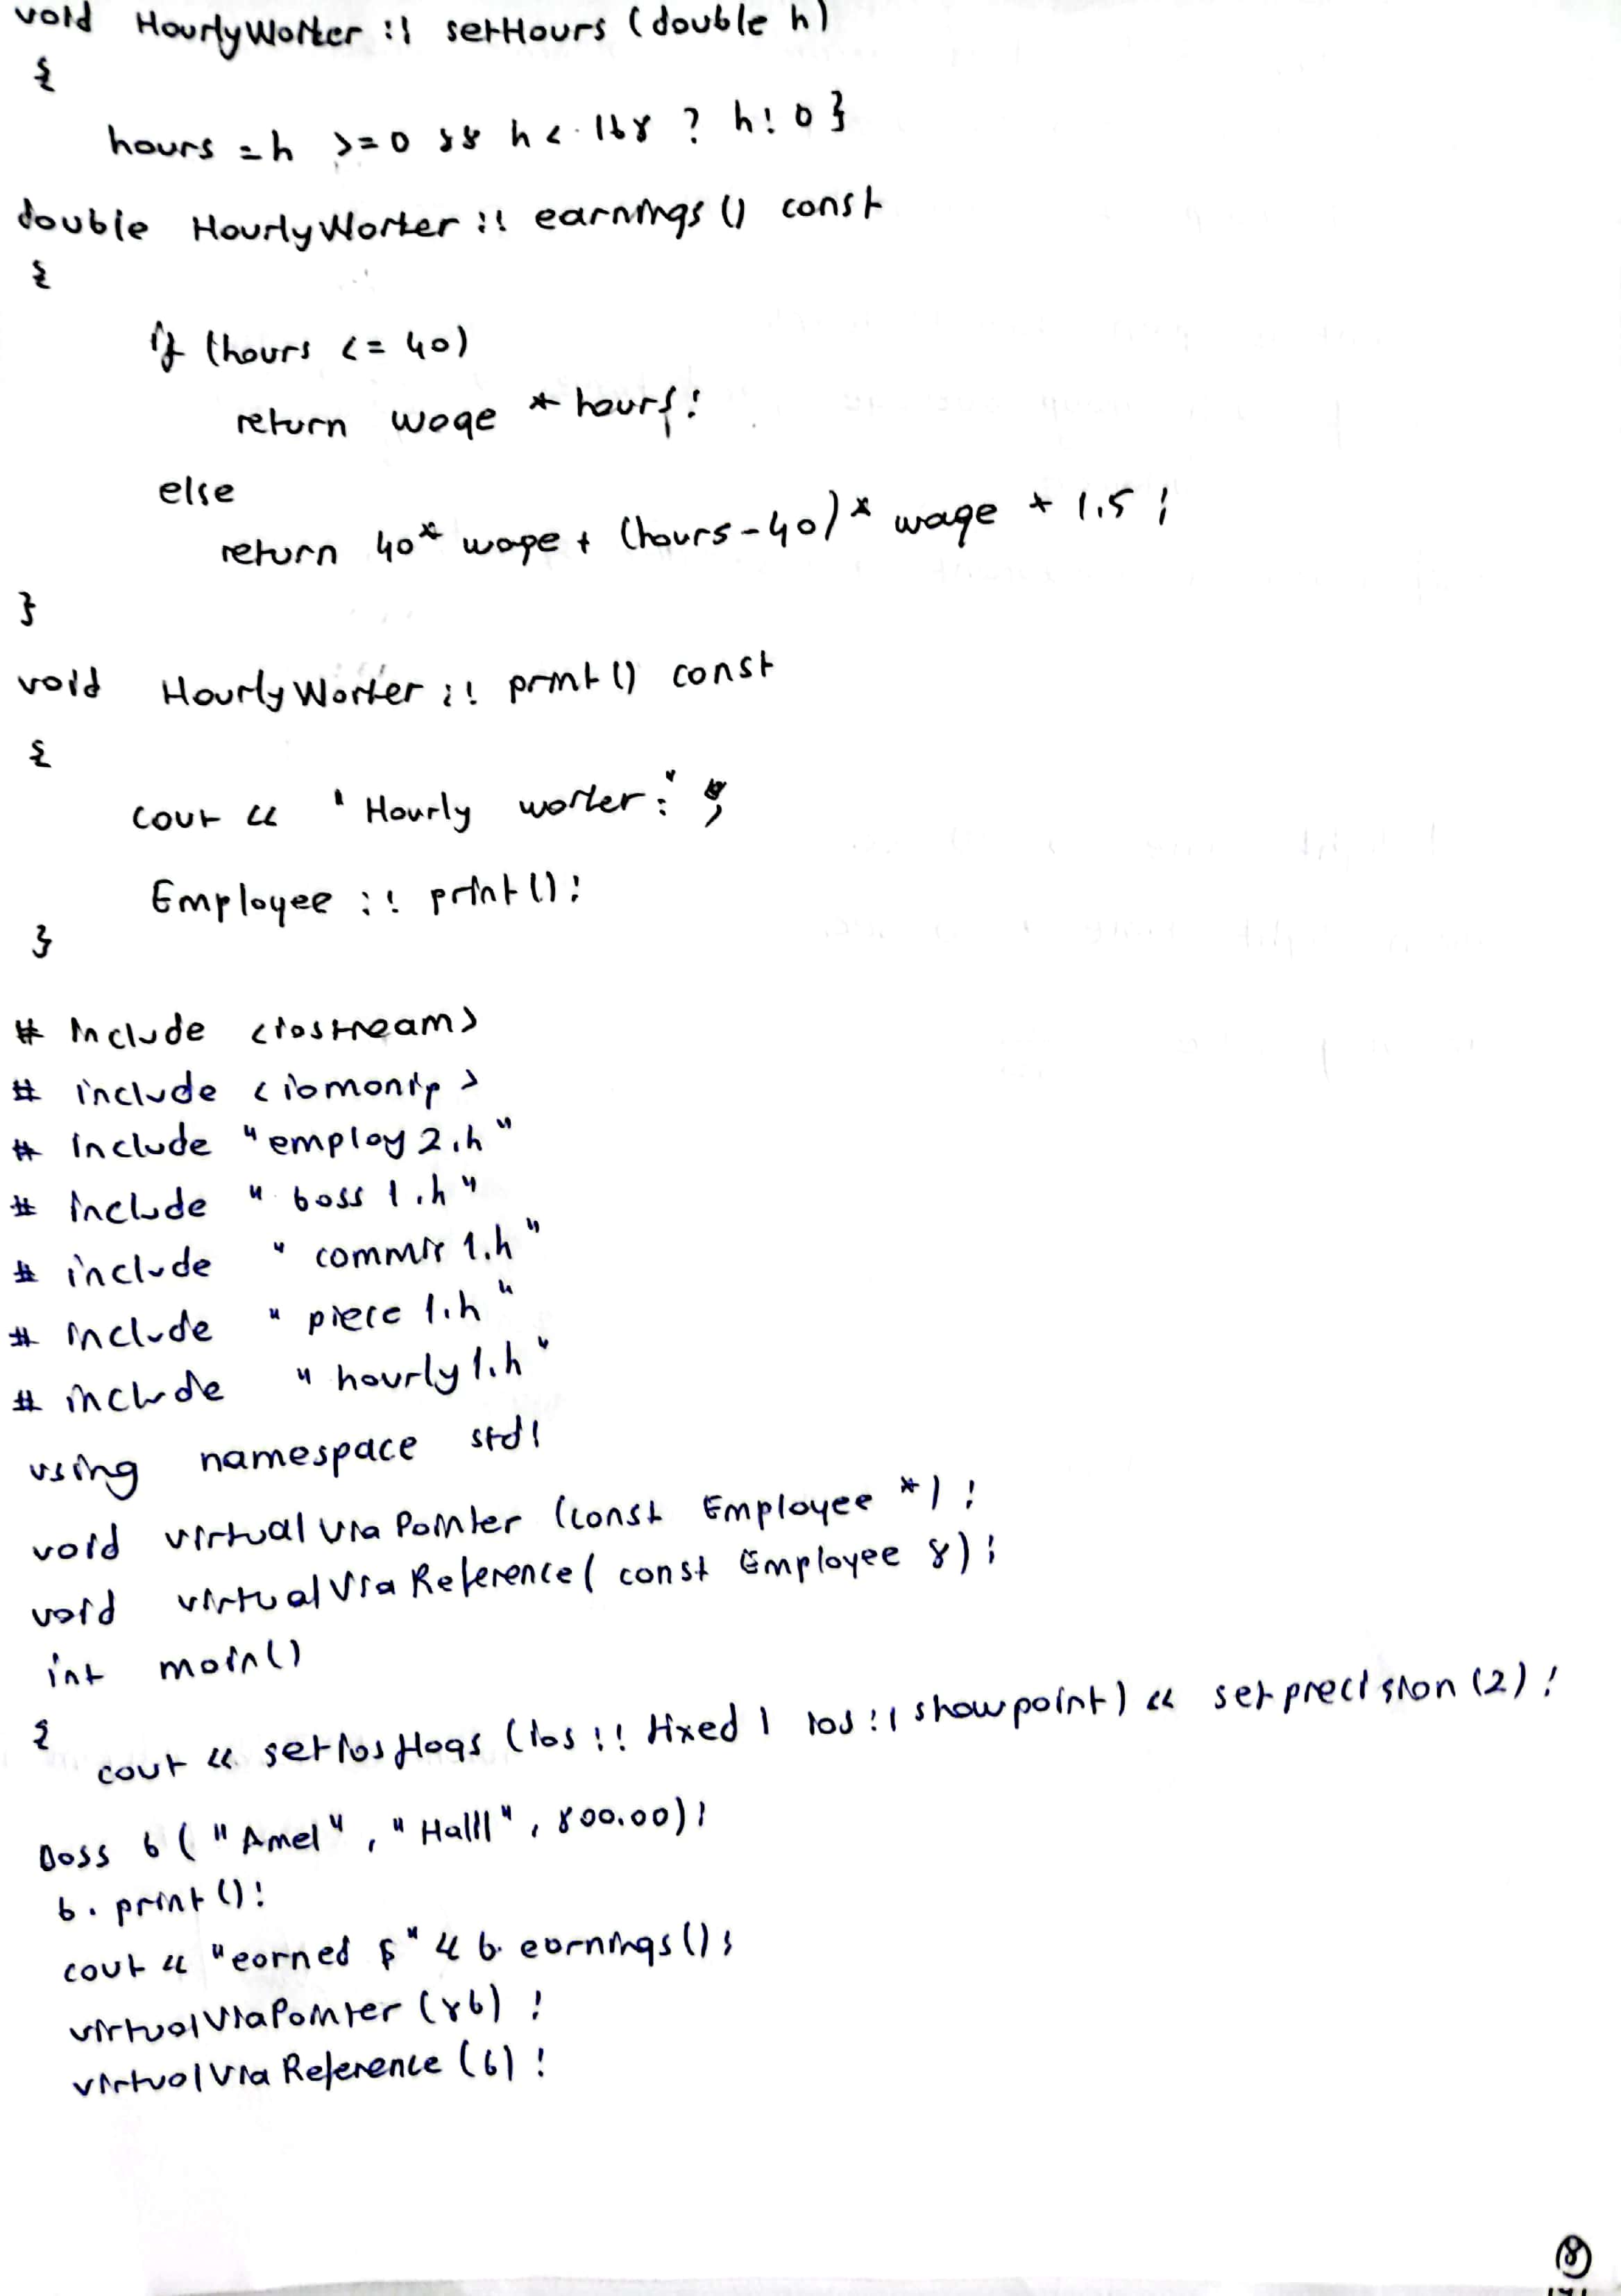 void HourlyWorker :: setHours (double h)
{
hours = h >= 0 && h < 168 ? h : 0 }
double HourlyWorker :: earnings () const
{
if (hours <= 40)
return wage * hours;
else
return 40* wage + (hours - 40) * wage * 1.5 ;
}
void HourlyWorker :: print () const
{
cout << " Hourly worker : " ;
Employee :: print ();
}
# include <iostream>
# include <iomanip>
# include "employ2.h"
# include "boss1.h"
# include "commis1.h"
# include "piece1.h"
# include "hourly1.h"
using namespace std;
void virtualViaPointer (const Employee *) ;
void virtualViaReference ( const Employee &) ;
int main()
{
cout << setiosflags (ios :: fixed | ios :: showpoint) << setprecision (2) ;
Boss b ( "Amel" , "Halil" , 800.00) ;
b. print ();
cout << "earned $" << b. earnings () ;
virtualViaPointer (&b) ;
virtualViaReference (b) ;
8